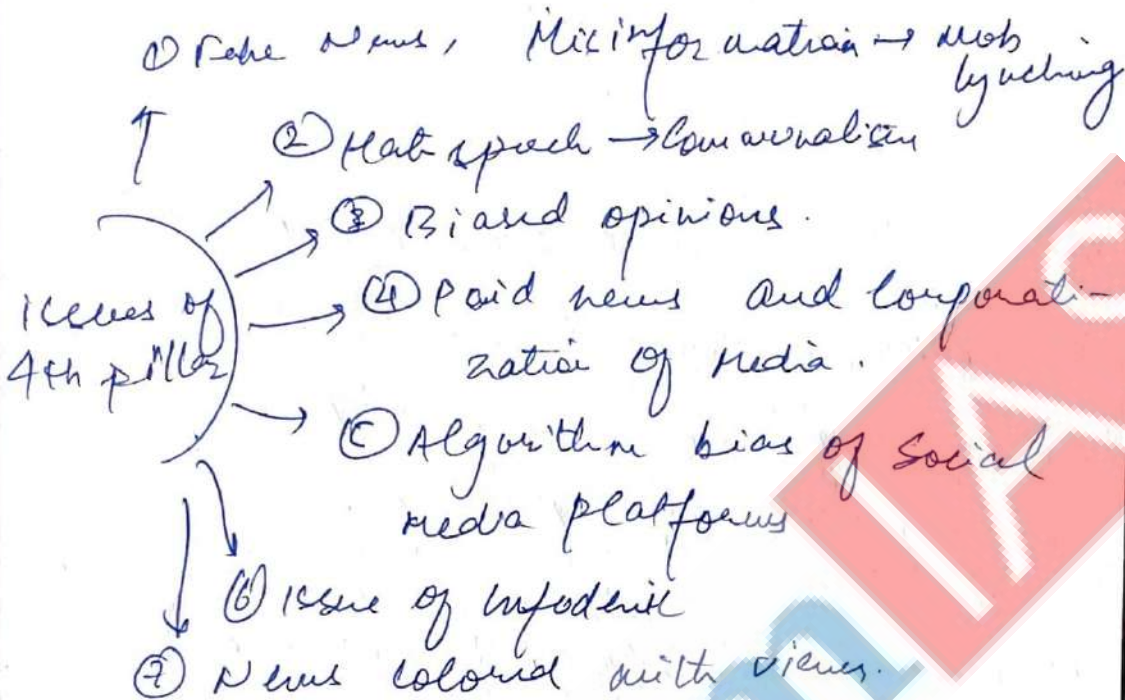 ① Fake News, Misinformation → Mob
lynching
② Hate speech → Communalism
③ Biased opinions.
issues of
4th pillar
④ Paid news and Corporati-
zation of Media.
⑤ Algorithm bias of Social
Media platforms
⑥ Issue of Infodemic
⑦ News colored with views.
IAS